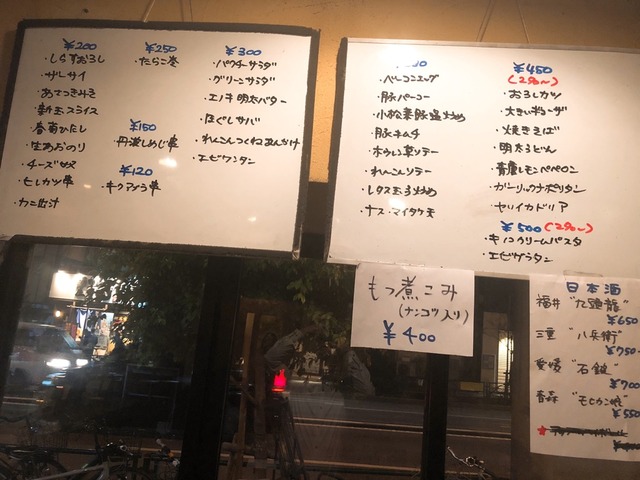 ¥200
・しらすおろし
・ザーサイ
・あさつきみそ
・新玉スライス
・春菊ひたし
・生あおのり
・チーズ
・ヒレカツ串
・カニ出汁
¥250
・たらこ巻
¥150
・丹波しめじ串
¥120
・キクアブラ串
¥300
・パクチーサラダ
・グリーンサラダ
・エノキ明太バター
・ほぐしサバ
・れんこんつくねあんかけ
・エビワンタン
・ベーコンエッグ
・豚パーコー
・小松菜豚塩炒め
・豚キムチ
・ホウレン草ソテー
・れんこんソテー
・レタス玉子炒め
・ナス・マイタケ天
¥450
(2名〜)
・おろしカツ
・大きいギョーザ
・焼きそば
・明太うどん
・青唐レモンペペロン
・ガーリックナポリタン
・ヤリイカドリア
¥500(2名〜)
・キノコクリームパスタ
・エビグラタン
もつ煮こみ
(ナンコツ入り)
¥400
日本酒
福井 "九頭龍"
¥650
三重 "八兵衛"
¥750
愛媛 "石鎚"
¥700
青森 "モヒカン娘"
¥550